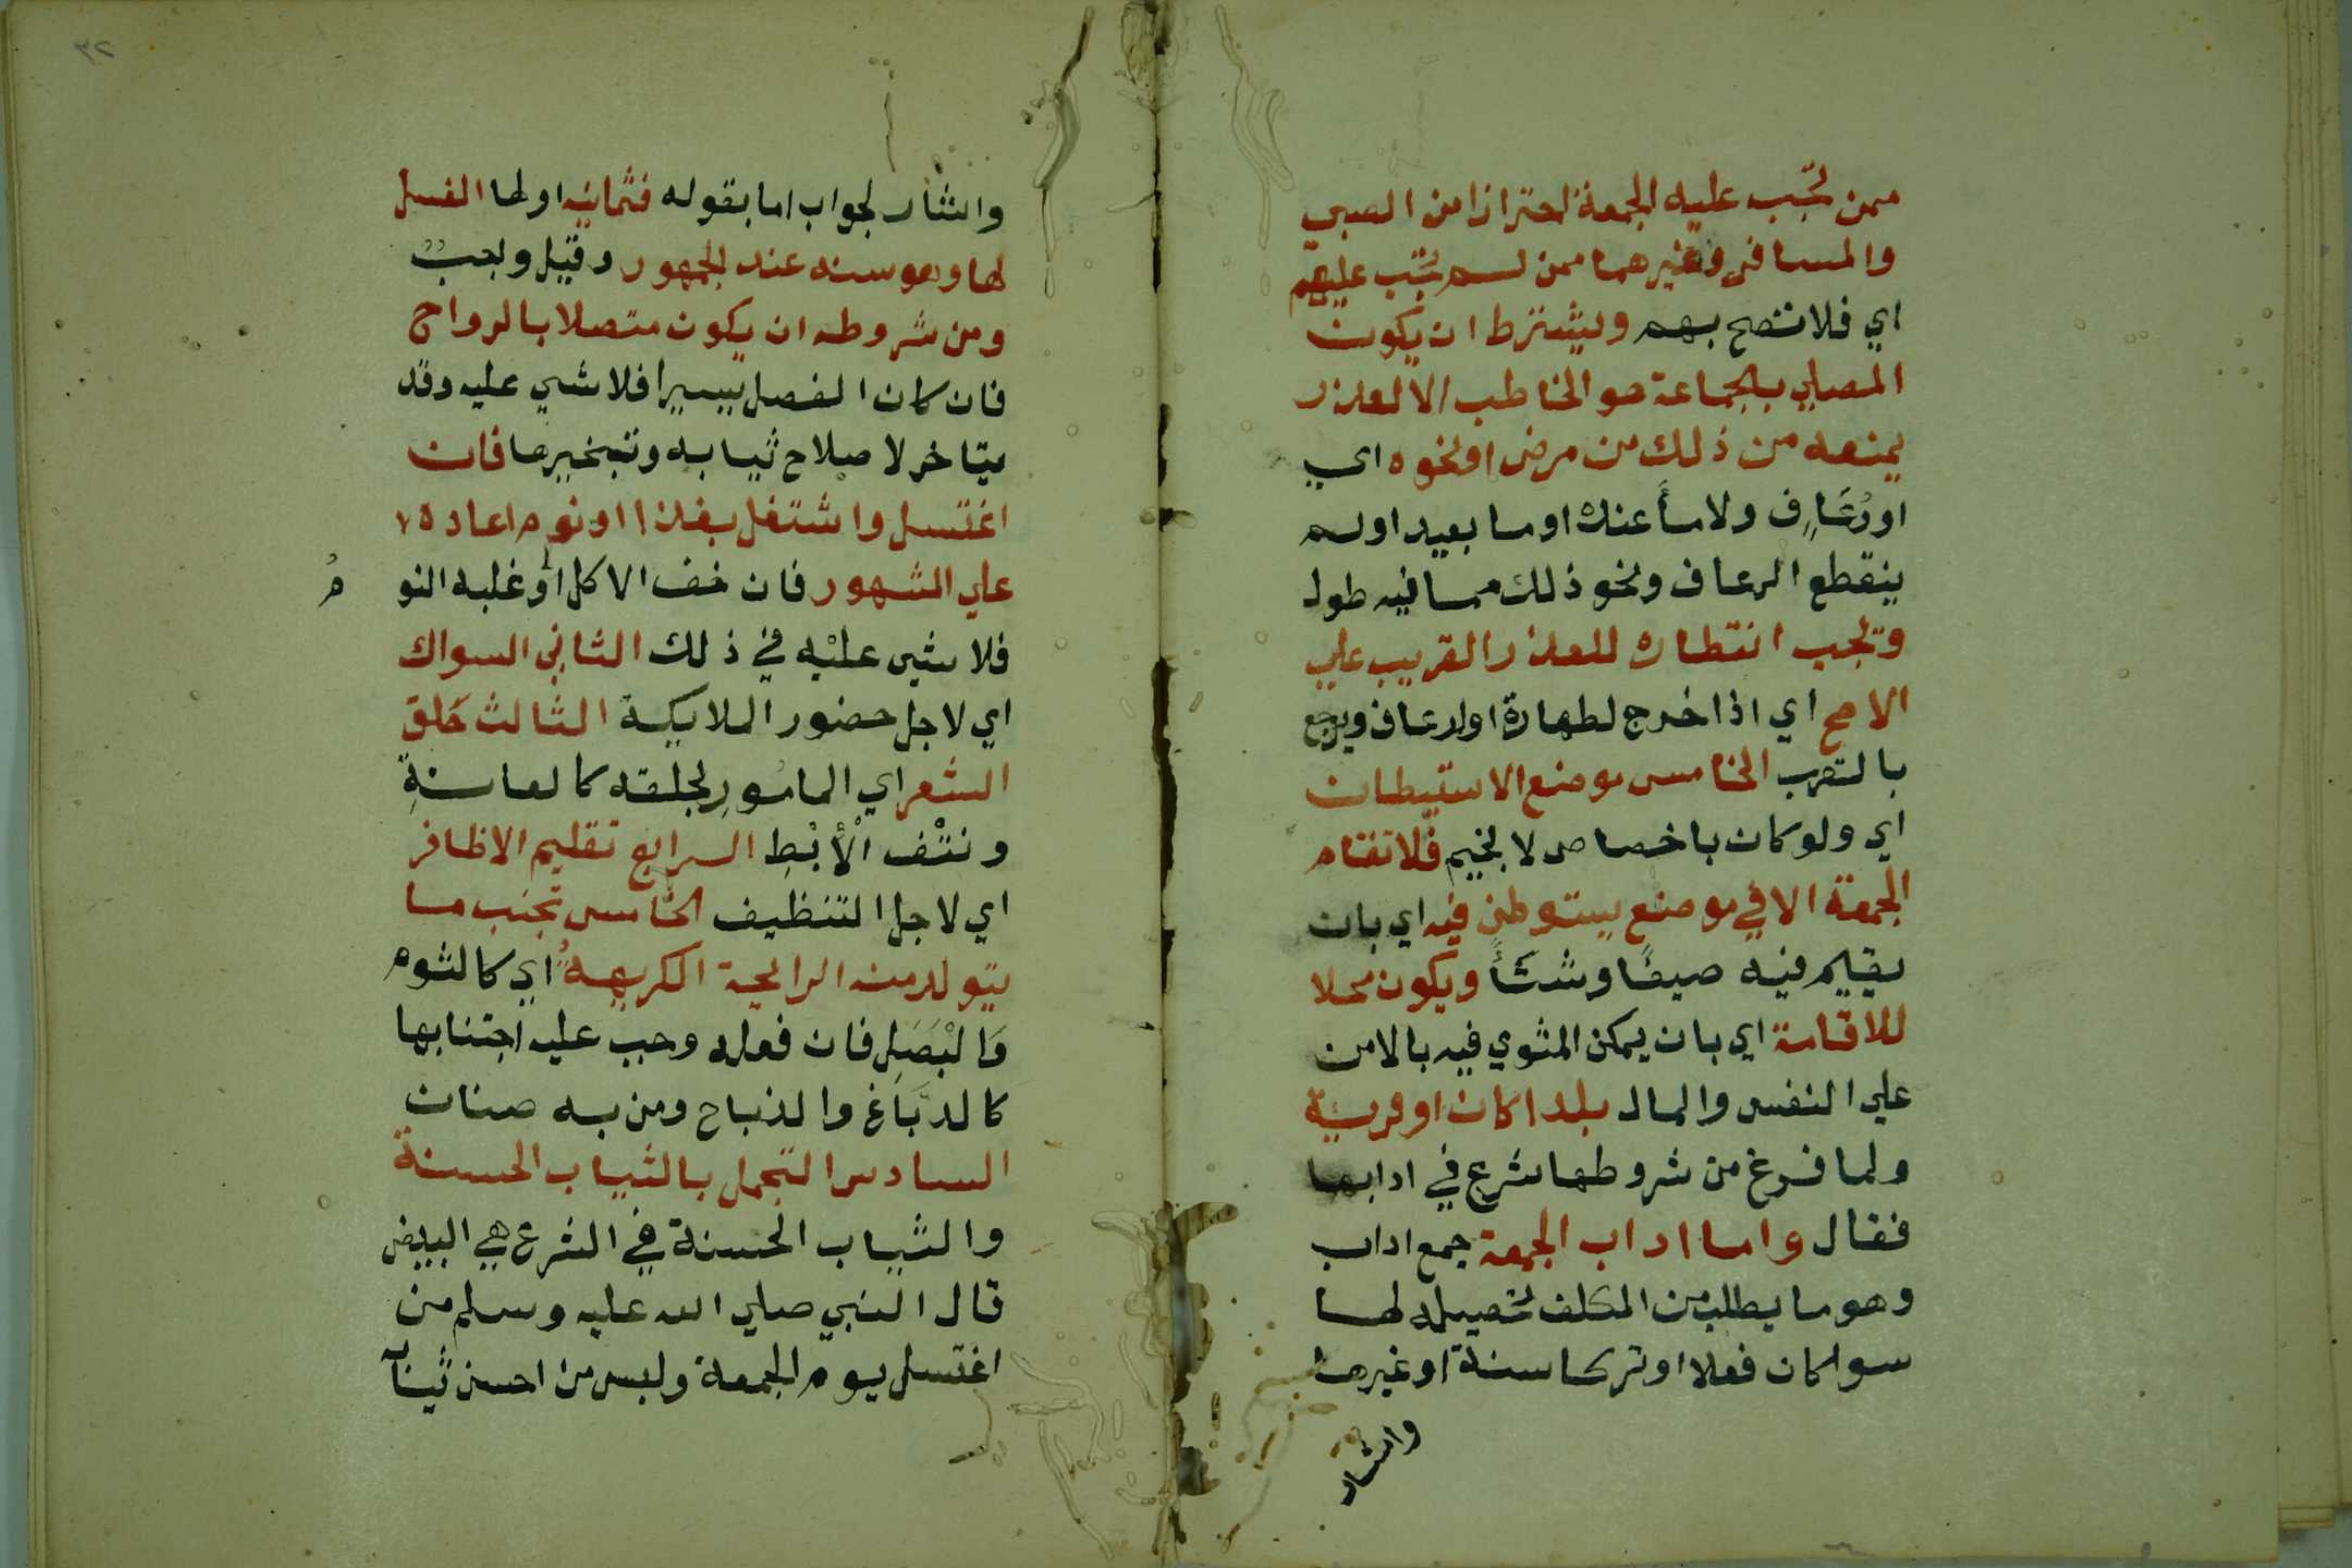 ممن تجب عليه الجمعة احترازا من الصبي
والمسافر وغيرهما ممن لم تجب عليهم
اي فلا تصح بهم ويشترط ان يكون
المصلي بالجماعة هو الخاطب الا لعذر
يمنعه من ذلك من مرض او نحوه اي
او رُعَافٍ ولا ماً عنده او ما بعيد او لم
ينقطع الرعاف ونحو ذلك مما فيه طول
وتجب انتظاره للعذر القريب علي
الاصح اي اذا خرج لطهارة او لرعاف ويرجع
بالقرب الخامس موضع الاستيطان
اي ولو كان باخصاص لا بخيم فلا تقام
الجمعة الا في موضع يستوطن فيه اي بان
يقيم فيه صيفًا وشتأً ويكون محلا
للاقامة اي بان يمكن المثوي فيه بالامن
علي النفس والمال بلدا كان او قرية
ولما فرغ من شروطها شرع في ادابها
فقال واما اداب الجمعة جمع اداب
وهو ما يطلب من المكلف تحصيله لها
سوا كان فعلا او تركا سنة او غيرها
واشار
٣٢
واشار لجواب اما بقوله فثمانيه اولها الغسل
لها وهو سنه عند الجمهور وقيل واجب
ومن شروطه ان يكون متصلا بالرواح
فان كان الفصل يسيرا فلا شي عليه وقد
يتاخر لاصلاح ثيابه وتبخيرها فان
اغتسل واشتغل بغذا او نوم اعاده
علي المشهور فان خف الاكل او غلبه النو
م
فلا شي عليْه في ذلك الثاني السواك
اي لاجل حضور الملايكة الثالث حَلق
الشعر اي المامُورِ بحلقه كالعانةِ
ونتْف الْأبْطِ الرابع تقليم الاظافر
اي لاجل التنظيف الخامس تجنب ما
يتولد منه الرايحة الكريهةُ اي كالثوم
وَالبَصَلِ فان فعله وجب عليه اجتنابها
كالدبَّاغ والذباح ومن به صنان
السادس التجمل بالثياب الحسنة
والثياب الحسنة في الشرع هي البيض
قال النبي صلي الله عليه وسلم من
اغتسل يوم الجمعة ولبس من احسن ثيابه